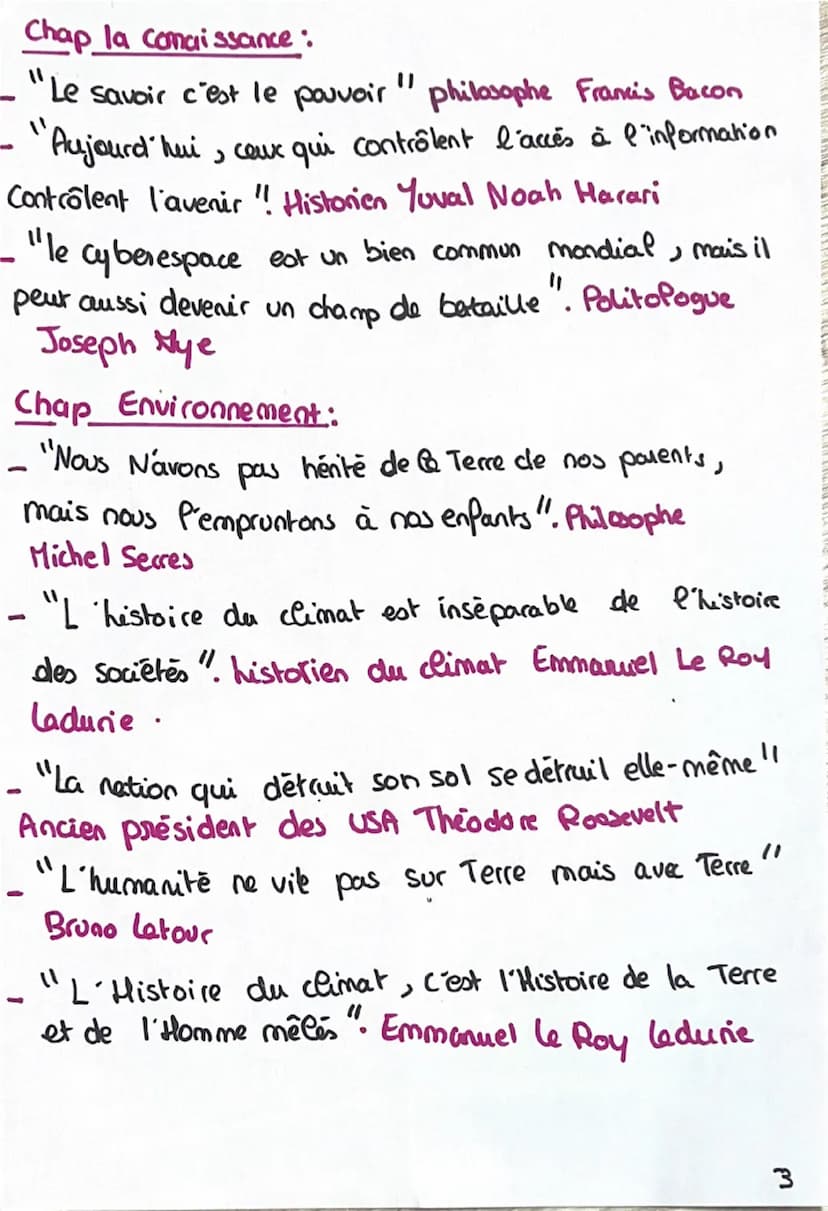 Chap la Conaissance :
- "Le savoir c'est le pouvoir" philosophe Francis Bacon
- "Aujourd'hui, ceux qui contrôlent l'accès à l'information
Contrôlent l'avenir". Historien Yuval Noah Harari
- "le cyberespace est un bien commun mondial, mais il
peut aussi devenir un champ de bataille". Politologue
Joseph Nye
Chap Environnement :
- "Nous N'avons pas hérité de la Terre de nos parents,
mais nous l'empruntons à nos enfants". Philosophe
Michel Serres
- "L'histoire du climat est inséparable de l'histoire
des sociétés". historien du climat Emmanuel Le Roy
Ladurie.
- "La nation qui détruit son sol se détruil elle-même"
Ancien président des USA Théodore Roosevelt
- "L'humanité ne vit pas sur Terre mais avec Terre"
Bruno Latour
- "L'Histoire du climat, c'est l'Histoire de la Terre
et de l'Homme mêlés". Emmanuel le Roy ladurie
3